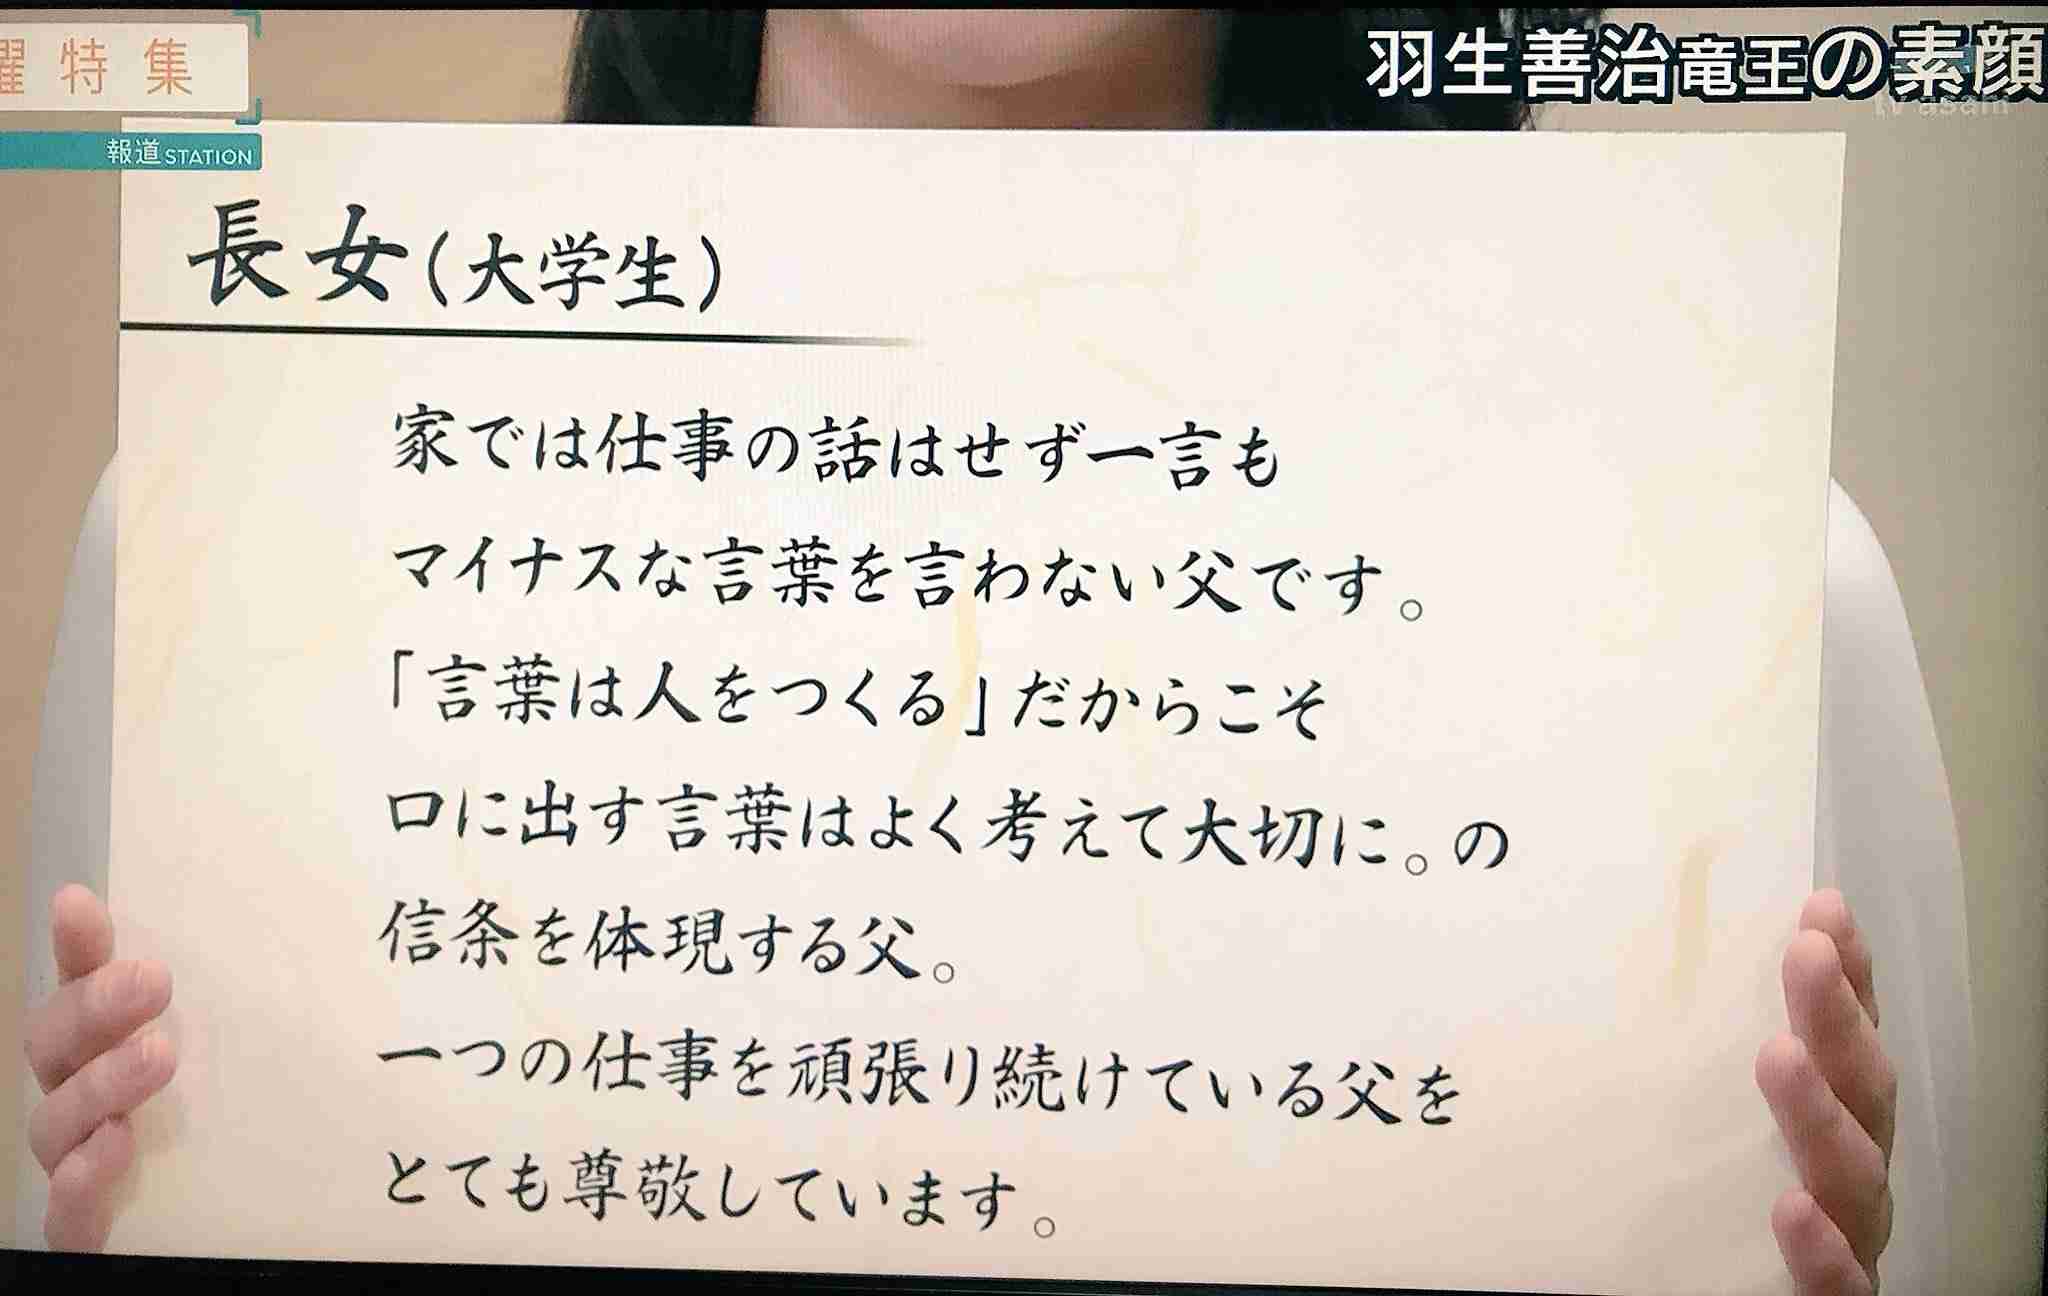 曜特集
報道STATION
羽生善治竜王の素顔
tv asahi
長女(大学生)
家では仕事の話はせず一言も
マイナスな言葉を言わない父です。
「言葉は人をつくる」だからこそ
口に出す言葉はよく考えて大切に。の
信条を体現する父。
一つの仕事を頑張り続けている父を
とても尊敬しています。